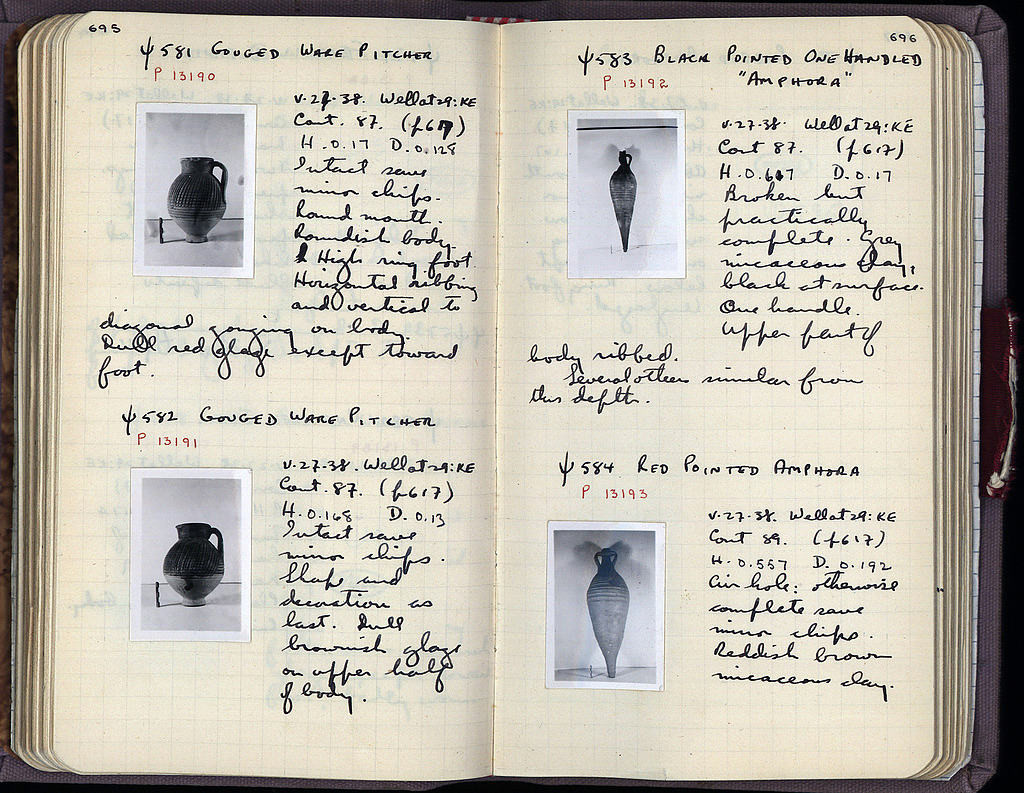 695
ψ 581 GOUGED WARE PITCHER
P 13190
V.27.38. Well at 29:KE
Cont. 87. (p617)
H. 0.17 D. 0.128
Intact save
minor chips.
Round mouth.
Roundish body.
High ring foot.
Horizontal ribbing
and vertical to
diagonal gouging on body.
Dull red glaze except toward
foot.
ψ 582 GOUGED WARE PITCHER
P 13191
V.27.38. Well at 29:KE
Cont. 87. (p617)
H. 0.168 D. 0.13
Intact save
minor chips.
Shape and
decoration as
last. Dull
brownish glaze
on upper half
of body.
696
ψ 583 BLACK POINTED ONE HANDLED
"AMPHORA"
P 13192
V.27.38. Well at 29:KE
Cont 87. (p617)
H. 0.617 D. 0.17
Broken but
practically
complete. Grey
micaceous clay,
black at surface.
One handle.
Upper part of
body ribbed.
Several others similar from
this depth.
ψ 584 RED POINTED AMPHORA
P 13193
V.27.38. Well at 29:KE
Cont 89. (p617)
H. 0.557 D. 0.192
Air hole: otherwise
complete save
minor chips.
Reddish brown
micaceous clay.